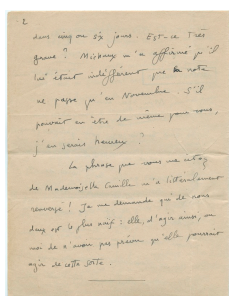 2
dans cinq ou six jours. Est-ce très
grave ? m'a affirmé qu'il
lui était indifférent que la note
ne passe qu'en Novembre. S'il
pouvait en être de même pour vous,
j'en serais heureux !
La phrase que vous me citez
de Mademoiselle m'a littéralement
renversé ! Je me demande qui de nous
deux est le plus naïf : elle, d'agir ainsi, ou
moi de n'avoir pas prévu qu'elle pourrait
agir de cette sorte.